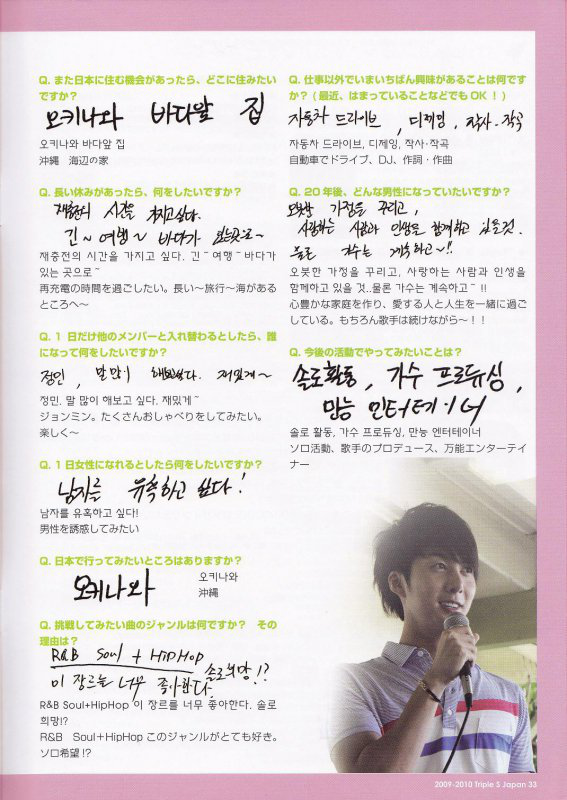 Q. また日本に住む機会があったら、どこに住みたい
ですか？
오키나와 바다앞 집
오키나와 바다앞 집
沖縄　海辺の家
Q. 長い休みがあったら、何をしたいですか？
재충전의 시간을 가지고싶다.
긴~여행~ 바다가 있는곳으로~
재충전의 시간을 가지고 싶다. 긴~여행~바다가
있는 곳으로~
再充電の時間を過ごしたい。長い〜旅行〜海がある
ところへ〜
Q. 1 日だけ他のメンバーと入れ替わるとしたら、誰
になって何をしたいですか？
정민, 말많이 해보고싶다. 재밌게~
정민. 말 많이 해보고 싶다. 재밌게~
ジョンミン。たくさんおしゃべりをしてみたい。
楽しく〜
Q. 1 日女性になれるとしたら何をしたいですか？
남자를 유혹하고 싶다!
남자를 유혹하고 싶다!
男性を誘惑してみたい
Q. 日本で行ってみたいところはありますか？
오키나와
오키나와
沖縄
Q. 挑戦してみたい曲のジャンルは何ですか？　その
理由は？
R&B Soul + HIPHOP
이 장르를 너무 좋아한다. 솔로희망!?
R&B Soul+HipHop 이 장르를 너무 좋아한다. 솔로
희망!?
R&B　Soul+HipHop このジャンルがとても好き。
ソロ希望!?
Q. 仕事以外でいまいちばん興味があることは何です
か？（最近、はまっていることなどでも OK！）
자동차 드라이브, 디제잉, 작사·작곡
자동차 드라이브, 디제잉, 작사·작곡
自動車でドライブ、DJ、作詞・作曲
Q. 20 年後、どんな男性になっていたいですか？
오붓한 가정을 꾸리고,
사랑하는 사람과 인생을 함께하고 있을것.
물론 가수는 계속하고~!!
오붓한 가정을 꾸리고, 사랑하는 사람과 인생을
함께하고 있을 것..물론 가수는 계속하고~!!
心豊かな家庭を作り、愛する人と人生を一緒に過ご
している。もちろん歌手は続けながら〜！！
Q. 今後の活動でやってみたいことは？
솔로활동, 가수 프로듀싱,
만능 엔터테이너
솔로 활동, 가수 프로듀싱, 만능 엔터테이너
ソロ活動、歌手のプロデュース、万能エンターテイ
ナー
2009-2010 Triple S Japan 33